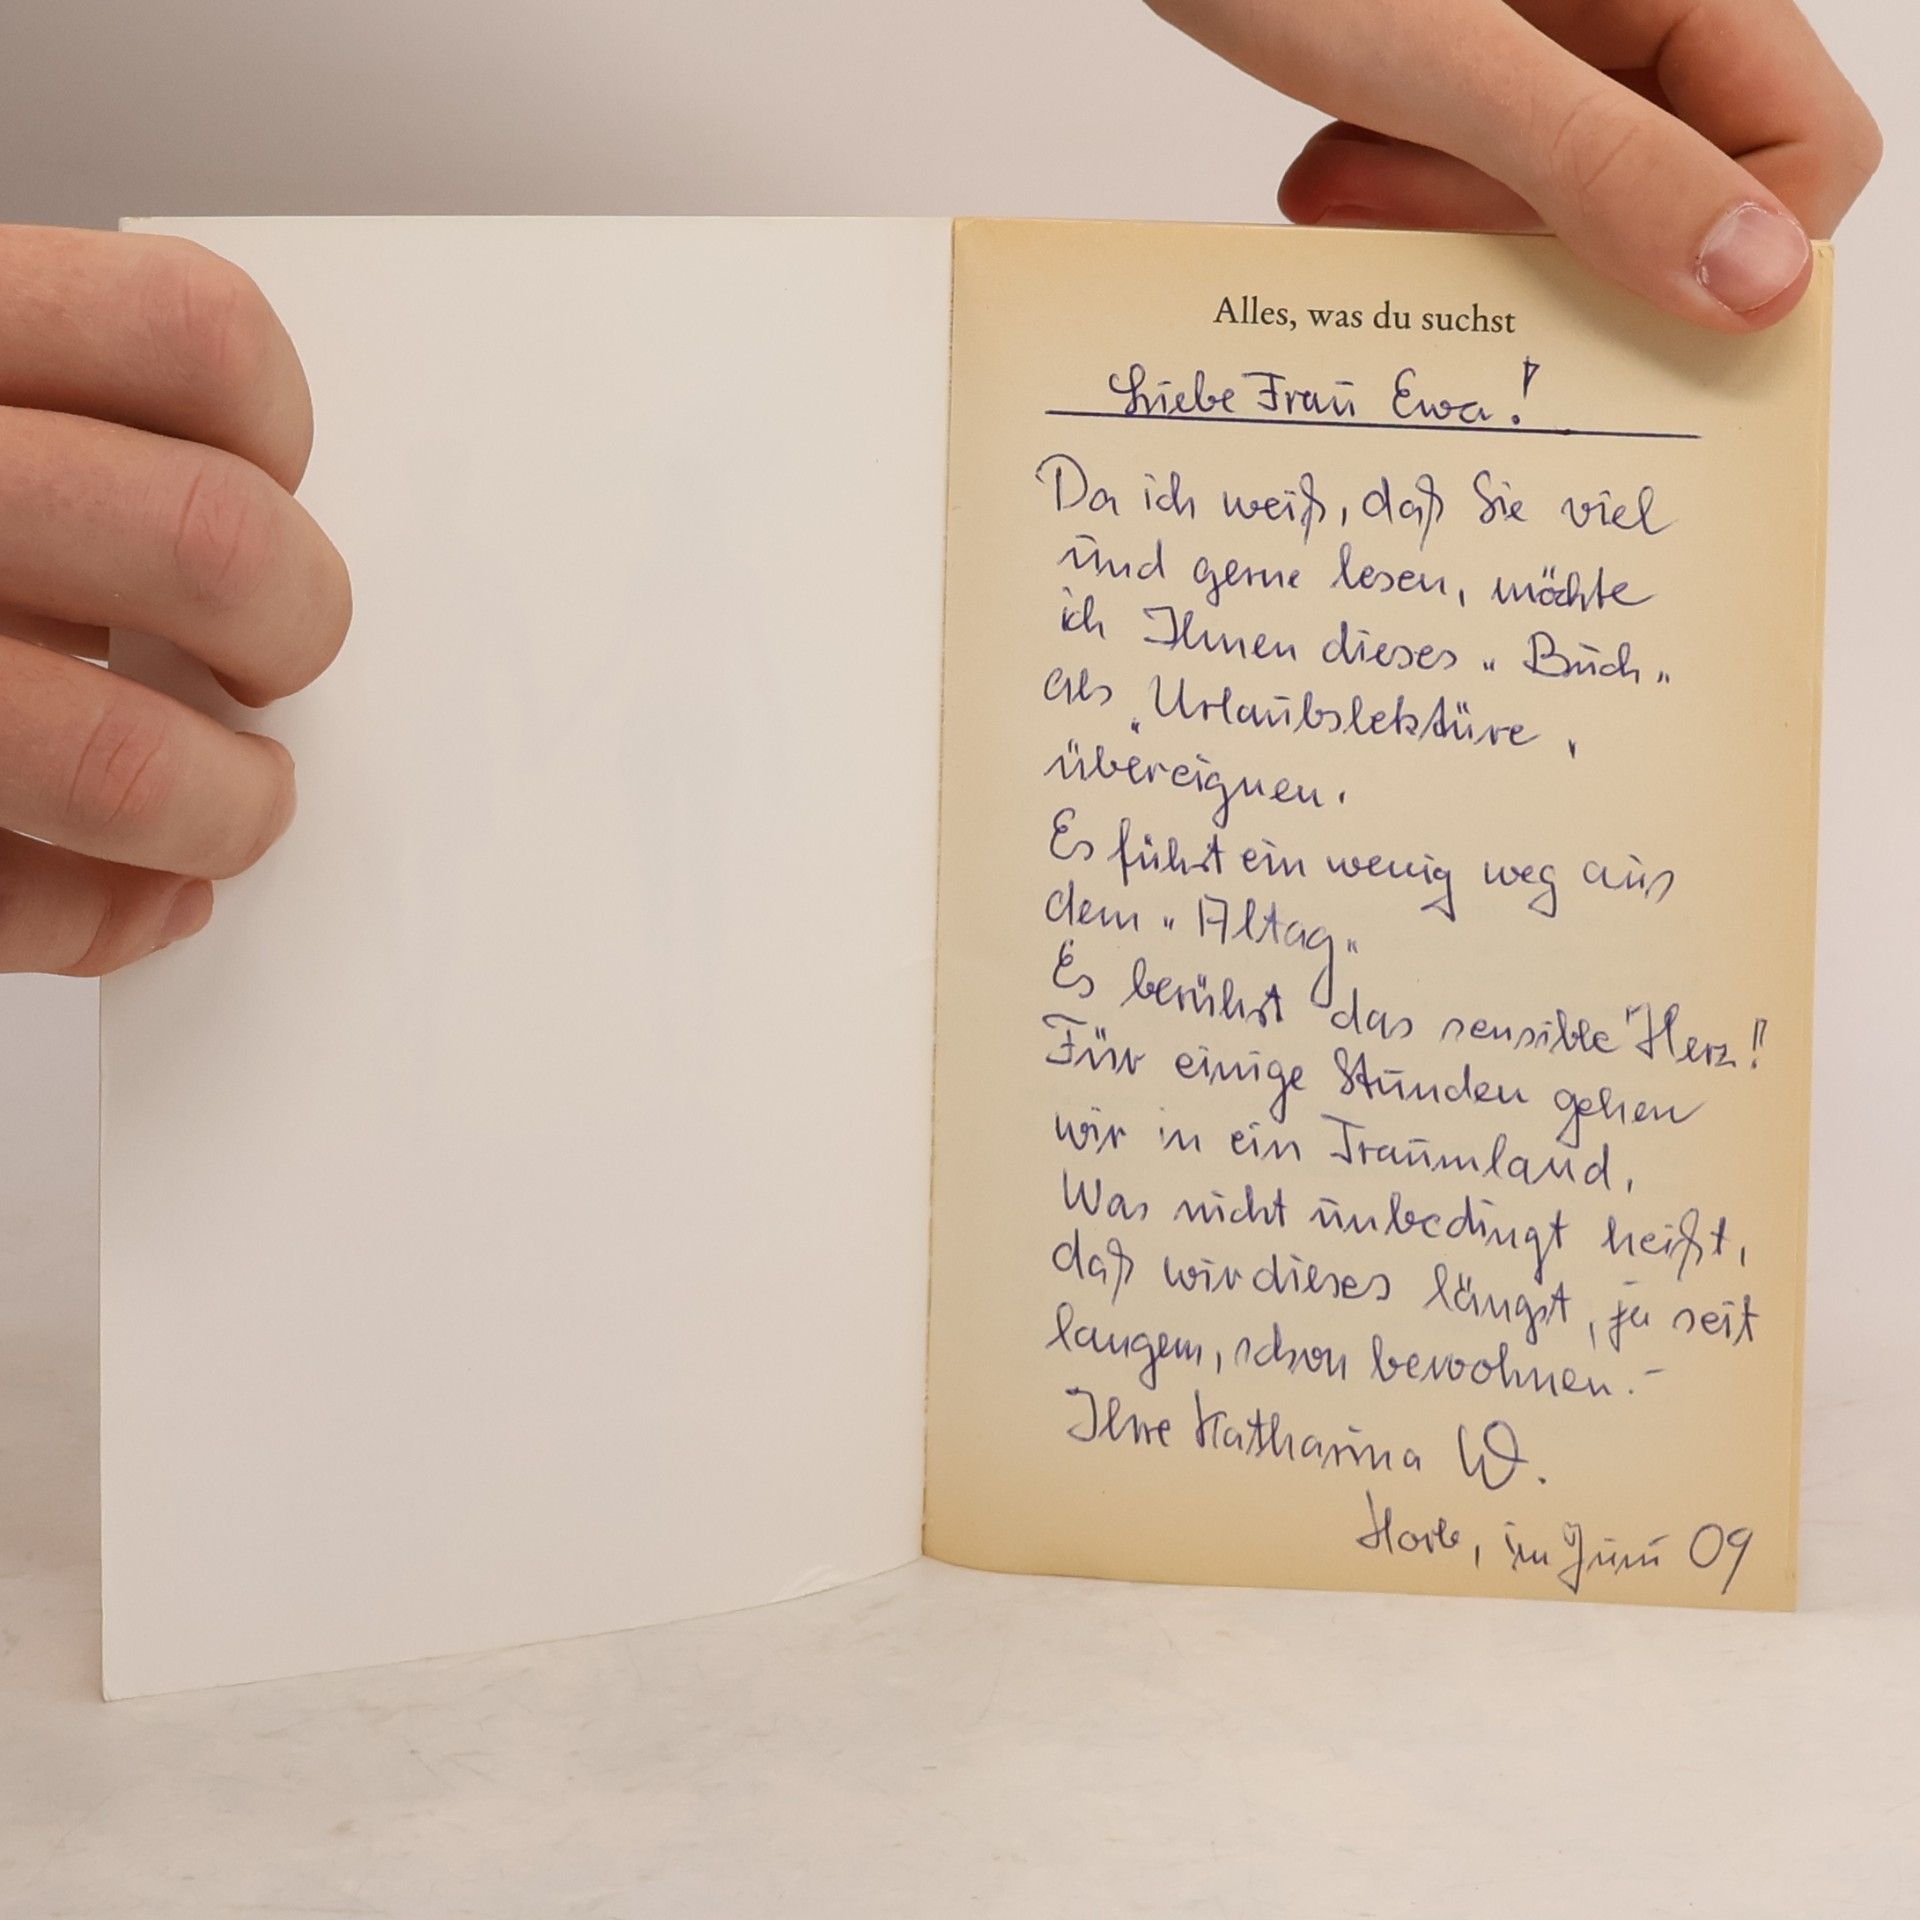 Alles, was du suchst
Liebe Frau Ewa!
Da ich weiß, daß Sie viel
und gerne lesen, möchte
ich Ihnen dieses "Buch"
als "Urlaubslektüre"
übereignen.
Es führt ein wenig weg aus
dem "Altag"
Es berührt das sensible "Herz!"
Für einige Stunden gehen
wir in ein Traumland.
Was nicht unbedingt heißt,
daß wir dieses längst, ja seit
langem, schon bewohnen.-
Ihre Katharina W.
Horb, im Juni 09